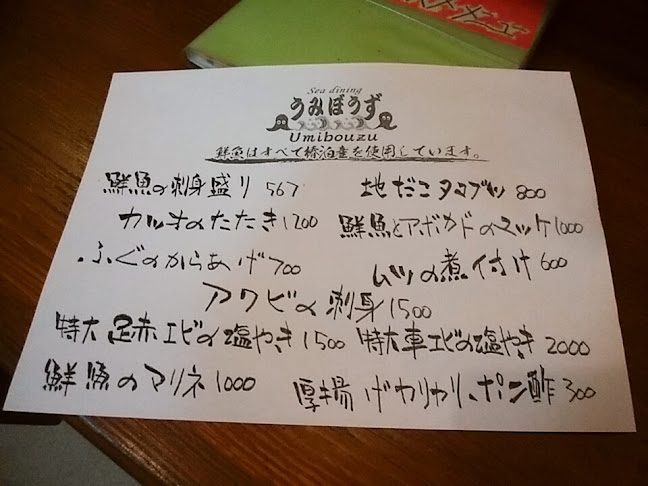 Sea dining
うみぼうず
Umibouzu
鮮魚はすべて椿泊産を使用しています。
鮮魚の刺身盛り 567
地だこタタブツ 800
カツオのたたき 1200
鮮魚とアボカドのユッケ 1000
ふぐのからあげ 700
ムツの煮付け 600
アワビの刺身 1500
特大足赤エビの塩やき 1500
特大車エビの塩やき 2000
鮮魚のマリネ 1000
厚揚げカリカリ、ポン酢 300